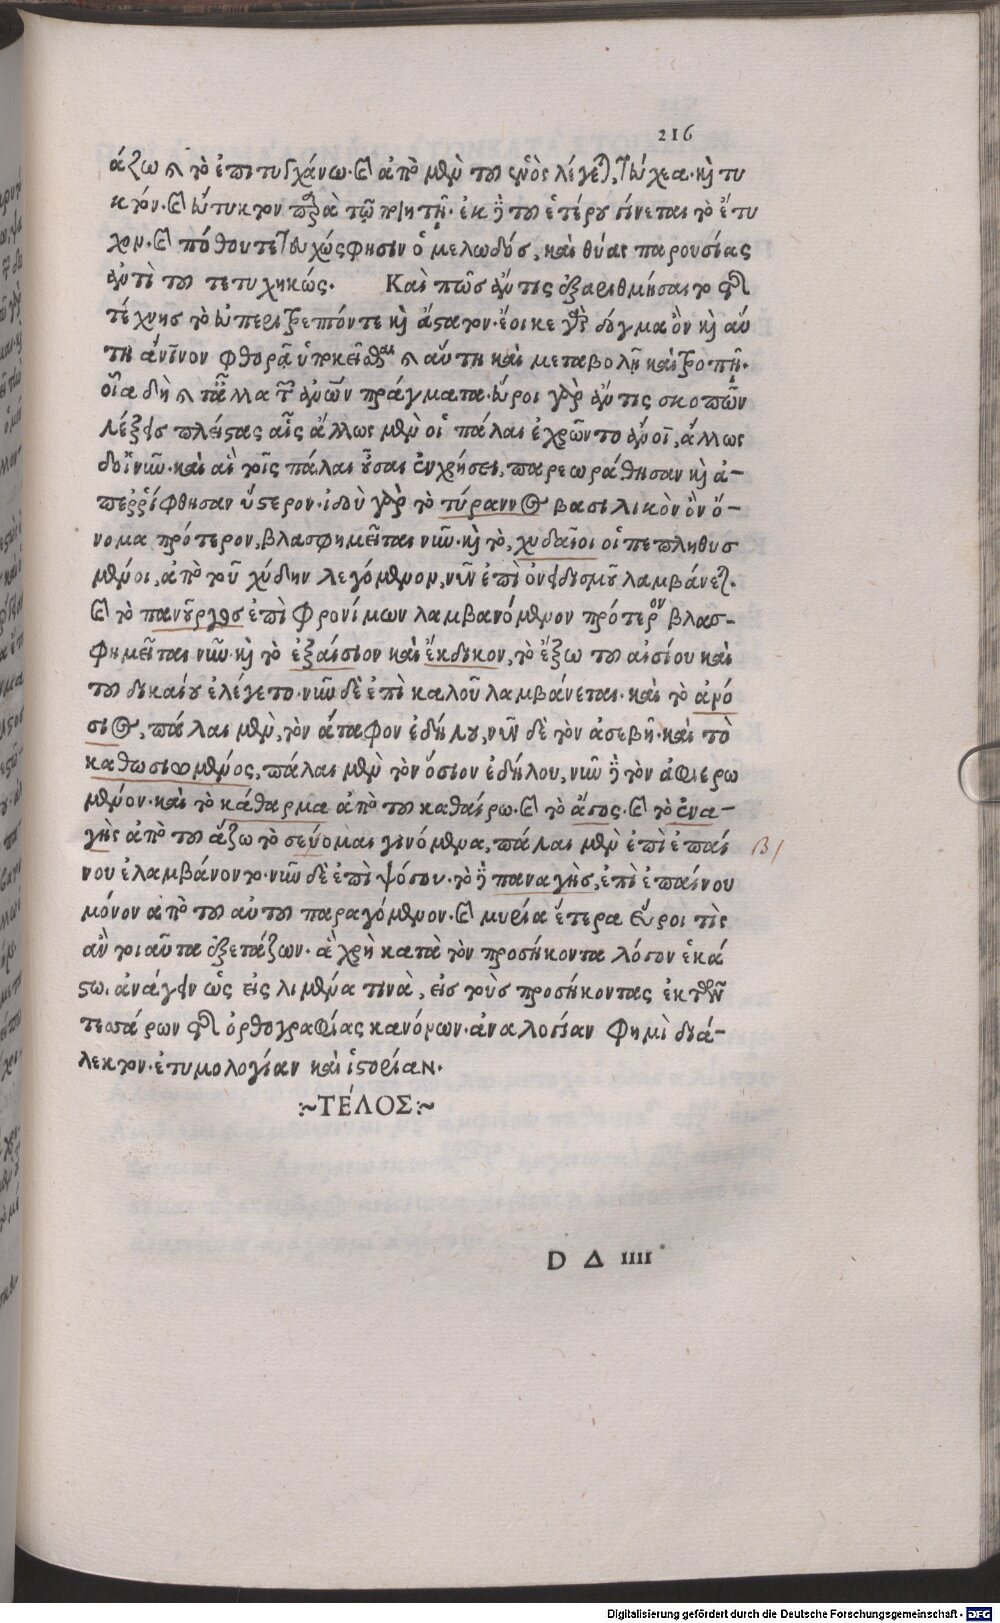 216
άζω καὶ τὸ ἐπιτυγχάνω. καὶ ἀπὸ μὲν τοῦ ἑνὸς λέγεται, τεύχεα. καὶ τυ
κτόν. καὶ εὔτυκτον παρὰ τῷ ποιητῇ. ἐκ δὲ τοῦ ἑτέρου γίνεται τὸ ἔτυ
χον. καὶ πόθου τετευχώς φησιν ὁ μελωδός, καὶ θύας παρουσίας
ἀντὶ τοῦ τετυχηκώς. Καὶ πῶς ἄν τις ἐξαριθμήσαιτο τῆς
τέχνης τὸ εὐπερίτρεπτόν τε καὶ ἄστατον. ἔοικε γὰρ δόγμα ὂν καὶ αὐ
τὴ φθορᾷ ὑποκεῖσθαι καὶ αὐτὴ καὶ μεταβολῇ καὶ τροπῇ.
οἷα δὴ καὶ τἆλλα τῶν πράγματα. εὕροι γὰρ ἄν τις σκοπῶν
λέξεις πλείστας αἷς ἄλλως μὲν οἱ πάλαι ἐχρῶντο ἄλλως
δ' οἱ νῦν. καὶ αἱ τοῖς πάλαι οὖσαι ἐν χρήσει, παρεωράθησαν καὶ ἀ-
περρίφθησαν ὕστερον. ἰδοὺ γὰρ τὸ τύραννος βασιλικὸν ὂν ὄ-
νομα πρότερον, βλασφημεῖται νῦν. καὶ τὸ, χυδαῖοι οἱ πεπληθυσ
μένοι, ἀπὸ τοῦ χύδην λεγόμενον, νῦν ἐπὶ ὀνειδισμοῦ λαμβάνεται.
καὶ τὸ πανοῦργος ἐπὶ φρονίμων λαμβανόμενον πρότερον βλασ-
φημεῖται νῦν. καὶ τὸ ἐξαίσιον καὶ ἔκδικον, τὸ ἔξω τοῦ αἰσίου καὶ
τοῦ δικαίου ἐλέγετο. νῦν δὲ ἐπὶ καλοῦ λαμβάνεται. καὶ τὸ ἀνό
σιος, πάλαι μὲν, τὸν ἄταφον ἐδήλου, νῦν δὲ τὸν ἀσεβῆ. καὶ τὸ
καθωσιωμένος, πάλαι μὲν τὸν ὅσιον ἐδήλου, νῦν δὲ τὸν ἀφιερω
μένον. καὶ τὸ κάθαρμα ἀπὸ τοῦ καθαίρω. καὶ τὸ ἄγος. καὶ τὸ ἐνα-
γὴς ἀπὸ τοῦ ἅζω τὸ σέβομαι γινόμενα, πάλαι μὲν ἐπὶ ἐπαί
νου ἐλαμβάνοντο. νῦν δὲ ἐπὶ ψόγου. τὸ δὲ παναγὴς, ἐπὶ ἐπαίνου
μόνον ἀπὸ τοῦ αὐτοῦ παραγόμενον. καὶ μυρία ἕτερα εὕροι τὶς
ἂν τοιαῦτα ἐξετάζων. ἃ χρὴ κατὰ τὸν προσήκοντα λόγον ἑκά
στῳ. ἀνάγειν ὡς εἰς λιμένα τινὰ, εἰς τοὺς προσήκοντας ἐκ τῶν
τεσσάρων τῆς ὀρθογραφίας κανόνων. ἀναλογίαν φημὶ διά-
λεκτον. ἐτυμολογίαν καὶ ἱστορίαν.
:~ΤΕΛΟΣ:~
D Δ IIII
Digitalisierung gefördert durch die Deutsche Forschungsgemeinschaft - DFG